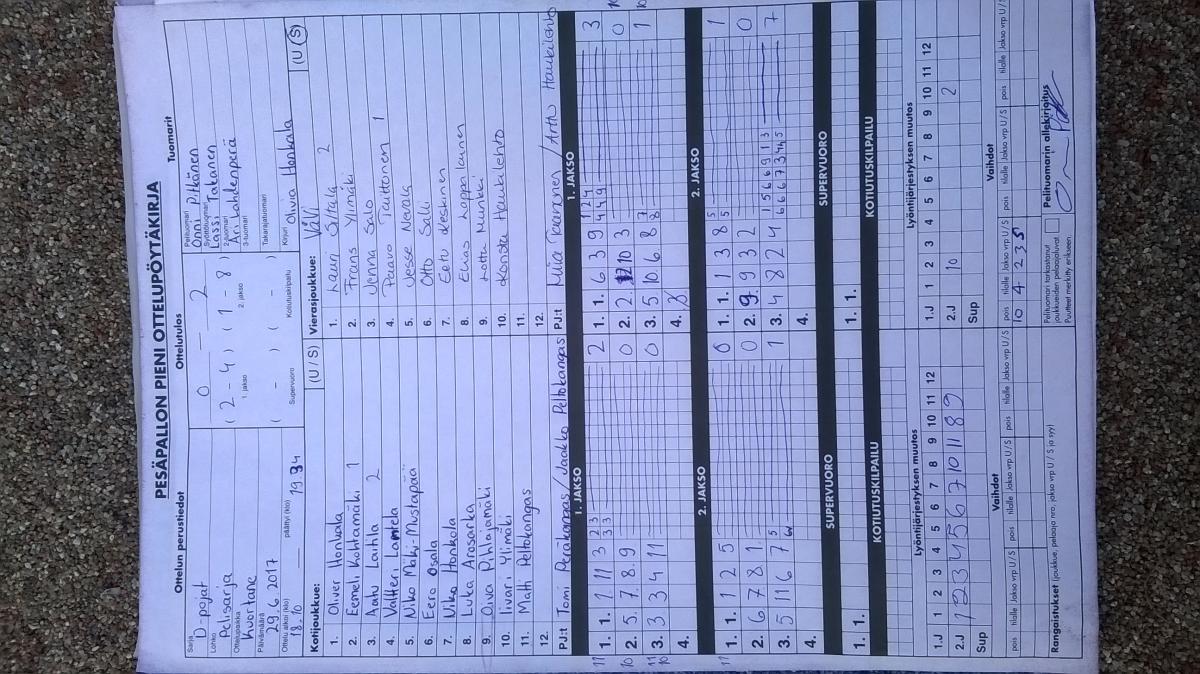 PESÄPALLON PIENI OTTELUPÖYTÄKIRJA
Ottelun perustiedot
Ottelutulos
Tuomarit
Sarja
D-pojat
Lohko
Pelisarja
Ottelupaikka
Kuortane
Päivämäärä
29.6.2017
Ottelu alkoi (klo)
18.10
päättyi (klo)
0 — 2
(2 - 4) (1 - 8)
1. jakso
2. jakso
( - ) ( - )
Supervuoro
Kotiutuskilpailu
Pelituomari
Onni Pitkänen
Syöttötuomari
Lassi Takanen
2-tuomari
Ari Lahdenperä
3-tuomari
Takarajatuomari
Kirjuri Olivia Honkala
Kotijoukkue:
(U / S)
1. Oliver Honkala
2. Eemeli Kohtamäki 1
3. Aatu Lauhila 2
4. Valtteri
5. Niko Mäki-Mustapää
6. Eero Osala
7. Niko Honkola
8. Luka Arosarka
9. Oiva Pihlajamäki
10. Iivari Ylimäki
11. Matti Peltokangas
12.
PJ:t Tomi Peräkangas / Jaakko Peltokangas
Vierasjoukkue: ViVi
(U / S)
1. Lauri Sitala 2
2. Frans Ylimäki
3. Jenna Salo
4. Paavo 1
5. Jesse Nevala
6. Otto Salli
7. Eetu Keskinen
8. Elias Loppalainen
9. Lotta Munkki
10. Konsta Haukilehto
11.
12.
PJ:t Mika / Arttu Haukilehto
1. JAKSO
1. JAKSO
1. 1. 1 11 3
2
2. 5. 7 8 9
0
3. 3 3 4 11
0
4.
1. 1. 6 3 9
3
2. 2. 10 3
0
3. 5 10 6 8
1
4.
2. JAKSO
2. JAKSO
1. 1. 1 2 5
0
2. 6 7 8 1
0
3. 5 11 6 7
1
4.
1. 1. 1 3 8
1
2. 9. 9 3 2
0
3. 4 8 2 4
7
4.
SUPERVUORO
SUPERVUORO
1. 1.
1. 1.
KOTIUTUSKILPAILU
KOTIUTUSKILPAILU
Lyöntijärjestyksen muutos
1 2 3 4 5 6 7 8 9 10 11 12
1.J
2.J 1 2 3 4 5 6 7 10 11 8 9
Sup
Lyöntijärjestyksen muutos
1 2 3 4 5 6 7 8 9 10 11 12
1.J
2.J 10 2
Sup
Vaihdot
pois tilalle Jakso vrp U / S pois tilalle Jakso vrp U / S pois tilalle Jakso vrp U / S
Vaihdot
pois tilalle Jakso vrp U / S pois tilalle Jakso vrp U / S pois tilalle Jakso vrp U / S
10 4 2 3 S
Rangaistukset (joukkue, pelaaja nro, jakso vrp, U / S ja syy)
Pelituomari tarkastanut
joukkueiden pelaajaluvat
Puutteet merkitty erikseen
Pelituomarin allekirjoitus